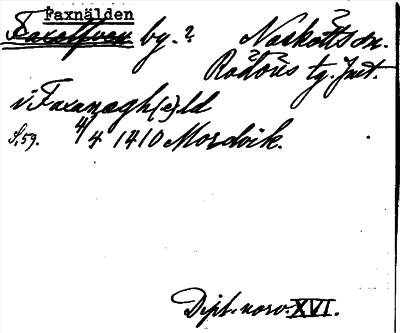 Faxnälden
Faxelfven by.? Naskotts sn.
Rödöns tg. Jmt.
i Faxanagh(e)ld
S. 59. 4/4 1410 Mordvik.
Dipl. norv. XVI.